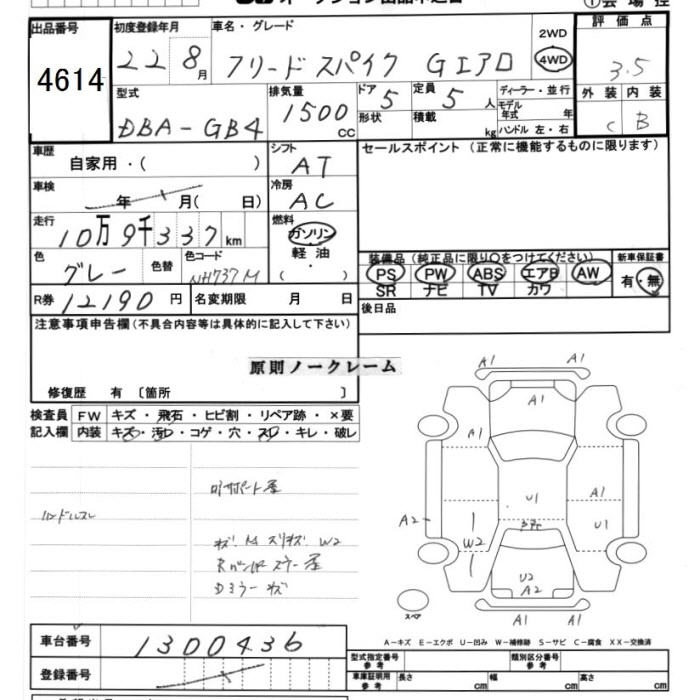 出品番号
4614
初度登録年月
22 8月
車名・グレード
フリードスパイク Gエアロ
2WD
4WD
評価点
3.5
外装 内装
C B
型式
DBA-GB4
排気量
1500
CC
ドア
5
定員
5人
形状
積載
kg
ディーラー・並行
モデル年式 年
ハンドル 左・右
車歴
自家用・( )
シフト
AT
セールスポイント(正常に機能するものに限ります)
車検
年 月( 日)
冷房
AC
走行
10万9千337km
燃料
ガソリン
軽油
( ・ )
色
グレー
色替
色コード
NH737M
装備品(純正品に限り○をつけてください)
PS PW ABS エアB AW
SR ナビ TV カワ
新車保証書
有・無
R券 12190円
名変期限 月 日
後日品
注意事項申告欄(不具合内容等は具体的に記入して下さい)
原則ノークレーム
修復歴 有〔箇所 〕
検査員記入欄
FW キズ・飛石・ヒビ割・リペア跡・×要
内装 キズ・汚レ・コゲ・穴・スレ・キレ・破レ
ハンドルスレ
キズ M スリキズ W2
Dミラーキズ
A1 A1
A1
A1
U1
A1
A2
W2
U1
U2
A2
A1 A1
スペア
A-キズ E-エクボ U-凹み W-補修跡 S-サビ C-腐食 XX-交換済
車台番号
1300436
登録番号
型式指定番号
参考
類別区分番号
参考
車庫証明用
参考
長さ cm
幅 cm
高さ cm